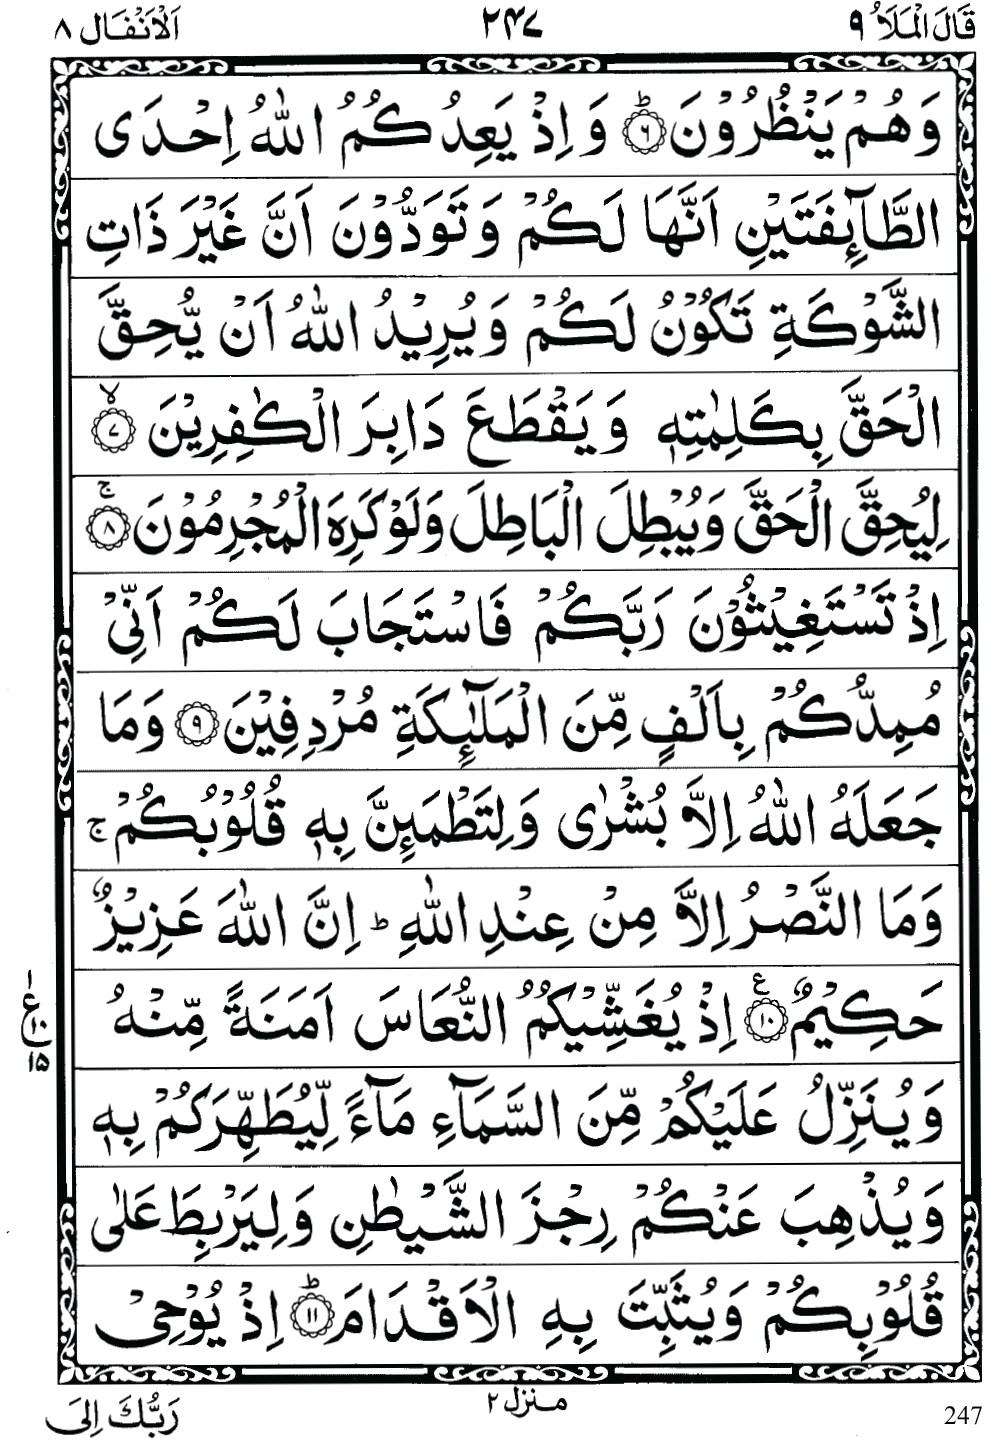 قَالَ الْمَلَاُ ٩ ٢٤٧ اَلْاَنْفَال ٨
وَهُمْ يَنْظُرُوْنَ ﴿٦﴾ؕ وَاِذْ يَعِدُكُمُ اللّٰهُ اِحْدَى
الطَّآئِفَتَيْنِ اَنَّهَا لَكُمْ وَتَوَدُّوْنَ اَنَّ غَيْرَ ذَاتِ
الشَّوْكَةِ تَكُوْنُ لَكُمْ وَيُرِيْدُ اللّٰهُ اَنْ يُّحِقَّ
الْحَقَّ بِكَلِمٰتِهٖ وَيَقْطَعَ دَابِرَ الْكٰفِرِيْنَ ﴿٧﴾ۙ
لِيُحِقَّ الْحَقَّ وَيُبْطِلَ الْبَاطِلَ وَلَوْ كَرِهَ الْمُجْرِمُوْنَ ﴿٨﴾ۚ
اِذْ تَسْتَغِيْثُوْنَ رَبَّكُمْ فَاسْتَجَابَ لَكُمْ اَنِّىْ
مُمِدُّكُمْ بِاَلْفٍ مِّنَ الْمَلٰٓئِكَةِ مُرْدِفِيْنَ ﴿٩﴾ وَمَا
جَعَلَهُ اللّٰهُ اِلَّا بُشْرٰى وَلِتَطْمَئِنَّ بِهٖ قُلُوْبُكُمْ ۚ
وَمَا النَّصْرُ اِلَّا مِنْ عِنْدِ اللّٰهِ ؕ اِنَّ اللّٰهَ عَزِيْزٌ
حَكِيْمٌ ﴿١٠﴾ ع اِذْ يُغَشِّيْكُمُ النُّعَاسَ اَمَنَةً مِّنْهُ
١ ع ١٠ ١٥
وَيُنَزِّلُ عَلَيْكُمْ مِّنَ السَّمَآءِ مَآءً لِّيُطَهِّرَكُمْ بِهٖ
وَيُذْهِبَ عَنْكُمْ رِجْزَ الشَّيْطٰنِ وَلِيَرْبِطَ عَلٰى
قُلُوْبِكُمْ وَيُثَبِّتَ بِهِ الْاَقْدَامَ ﴿١١﴾ؕ اِذْ يُوْحِىْ
منزل ٢
رَبُّكَ اِلَى
247